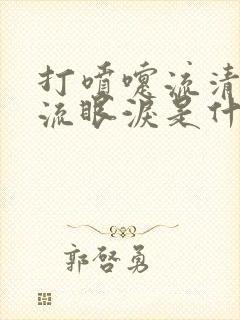 打喷嚏流清
流眼淚是什
郭啓勇